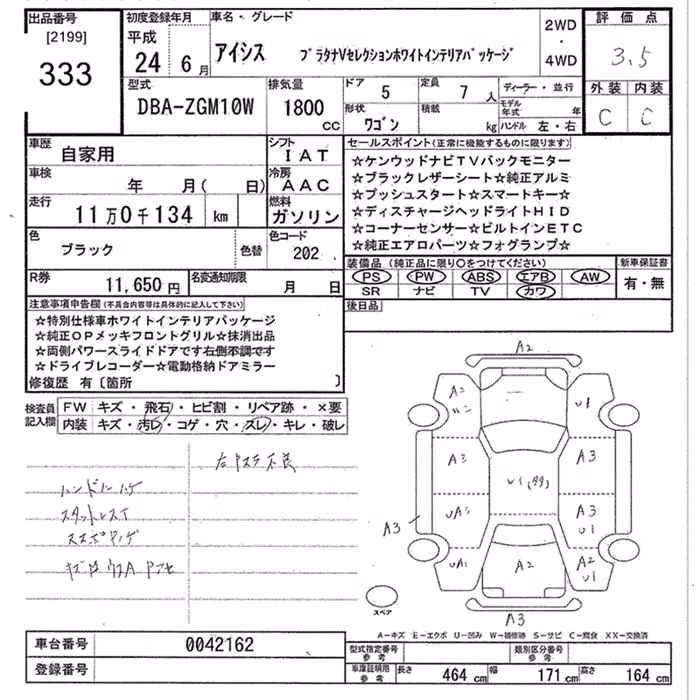 出品番号
[2199]
333
初度登録年月
平成
24 6 月
車名・グレード
アイシス プラタナVセレクションホワイトインテリアパッケージ
2WD
・
4WD
評価点
3.5
外装 内装
C C
型式
DBA-ZGM10W
排気量
1800
CC
ドア
5
定員
7 人
形状
ワゴン
積載
kg
ディーラー・並行
モデル年式 年
ハンドル 左・右
車歴
自家用
シフト
IAT
車検
年 月( 日)
冷房
AAC
走行
11万0千134 km
燃料
ガソリン
色
ブラック
色替
色コード
202
R券
11,650 円
名変通知期限
月 日
セールスポイント(正常に機能するものに限ります)
☆ケンウッドナビTVバックモニター
☆ブラックレザーシート☆純正アルミ
☆プッシュスタート☆スマートキー☆
☆ディスチャージヘッドライトHID
☆コーナーセンサー☆ビルトインETC
☆純正エアロパーツ☆フォグランプ☆
装備品(純正品に限り〇をつけてください)
PS PW ABS エアB AW
SR ナビ TV カワ
新車保証書
有・無
後日品
注意事項申告欄(不具合内容等は具体的に記入して下さい)
☆特別仕様車ホワイトインテリアパッケージ
☆純正OPメッキフロントグリル☆抹消出品
☆両側パワースライドドアです右側不調です
☆ドライブレコーダー☆電動格納ドアミラー
修復歴 有〔箇所 〕
検査員記入欄
FW キズ・飛石・ヒビ割・リペア跡・×要
内装 キズ・汚レ・コゲ・穴・スレ・キレ・破レ
右PステF不良
ハンドルハゲ
スタットレスイ
A2
A2
U1
A3
A3
U1
A3
A3
U1
UA1
A2
A2
U1
A3
スペア
A-キズ E-エクボ U-凹み W-補修跡 S-サビ C-腐食 XX-交換済
車台番号
0042162
登録番号
型式指定番号
参考
類別区分番号
参考
車庫証明用
参考
長さ 464 cm 幅 171 cm 高さ 164 cm